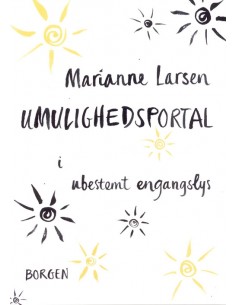 Marianne Larsen
UMULIGHEDSPORTAL
i
ubestemt engangslys
BORGEN